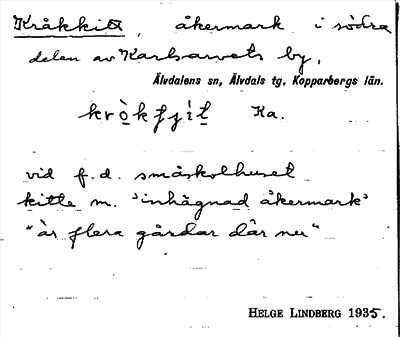 Kråkkitt, åkermark i södra
delen av Karlsarvets by,
Älvdalens sn, Älvdals tg, Kopparbergs län.
kròkfjìt Ka.
vid f.d. småskolhuset
kitte m. 'inhägnad åkermark'
"är flera gårdar där nu"
HELGE LINDBERG 1935.